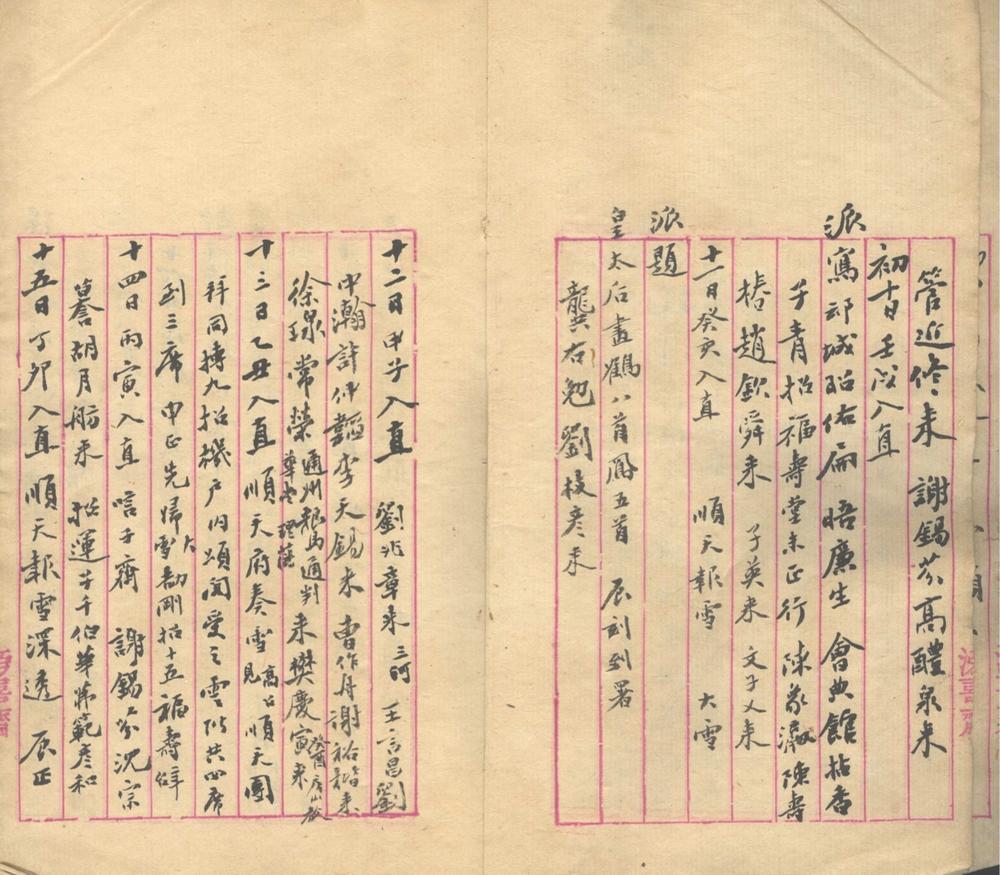 管近修来 謝錫芬高醴泉来
初十日壬戌入直
派寫邙城 佑扁 晤廉生 會典館拈香
子青招福壽堂未正行 陳家瀛陳壽
椿趙欽舜来 子英来 文子义来
十一日癸亥入直 順天報雪 大雪
派題
皇太后畫鶴八首鳳五首 辰刻到署
龔右勉劉枝彦来
十二日甲子入直 劉兆章来 三河 王言昌劉
中瀚許仲韜李天錫来 曹作舟謝裕楷来
徐琭常榮 通州糧馬通判 来樊慶寅来
十三日乙丑入直 順天府奏雪 見 順天團
拜同摶九招 户内頌閣受之雲階共四席
到三席 申正先歸 大雪 劼剛招十五福壽辞
十四日丙寅入直 唁子齋 謝錫芬沈宗
謩胡月舫来 松運 于千伯華 範彦和
十五日丁卯入直 順天報雪深透 辰正